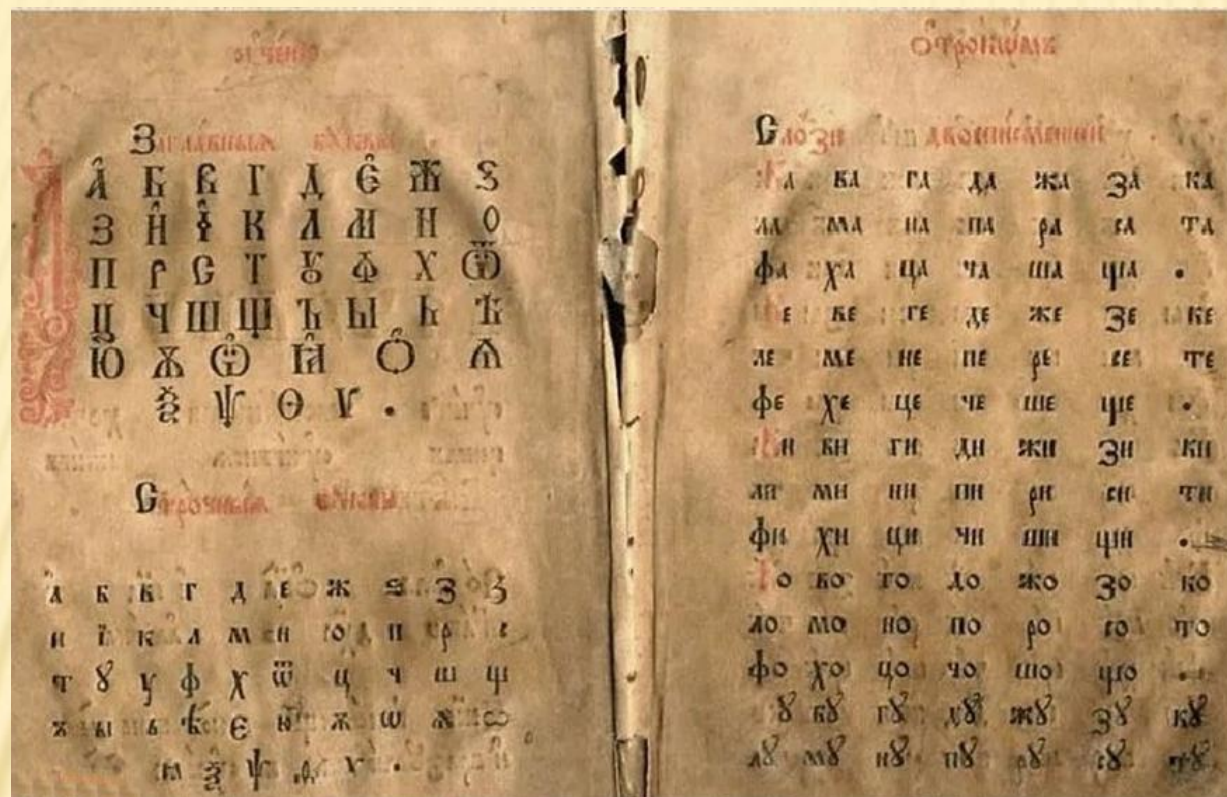 оученїю
Заглавныѧ бꙋквы
А Б В Г Д Є Ж Ѕ
З И І К Л М Н О
П Р С Т Ꙋ Ф Х Ѿ
Ц Ч Ш Щ Ъ Ы Ь Ѣ
Ю Ѫ Ѽ Ꙗ Ѻ Ѧ
Ѯ Ѱ Ѳ Ѵ .
Строчныѧ бꙋквы
а б в г д е ж ѕ З з
и ї к л м н о п р с
т ꙋ у ф х ѿ ц ч ш щ
ъ ы ь ѣ є ю ѫ ѡ ѧ
ꙗ ѯ ѱ ѳ ѵ .
отрокѡмъ
Слози двописменнїи
Ба ва га да жа за ка
ла ма на па ра са та
фа ха ца ча ша ща .
Бе ве ге де же зе ке
ле ме не пе ре се те
фе хе це че ше ще .
Би ви ги ди жи зи ки
ли ми ни пи ри си ти
фи хи ци чи ши щи .
Бо во го до жо зо ко
ло мо но по ро со то
фо хо цо чо шо що .
вꙋ гꙋ дꙋ жꙋ зꙋ кꙋ
лꙋ мꙋ нꙋ пꙋ рꙋ сꙋ тꙋ